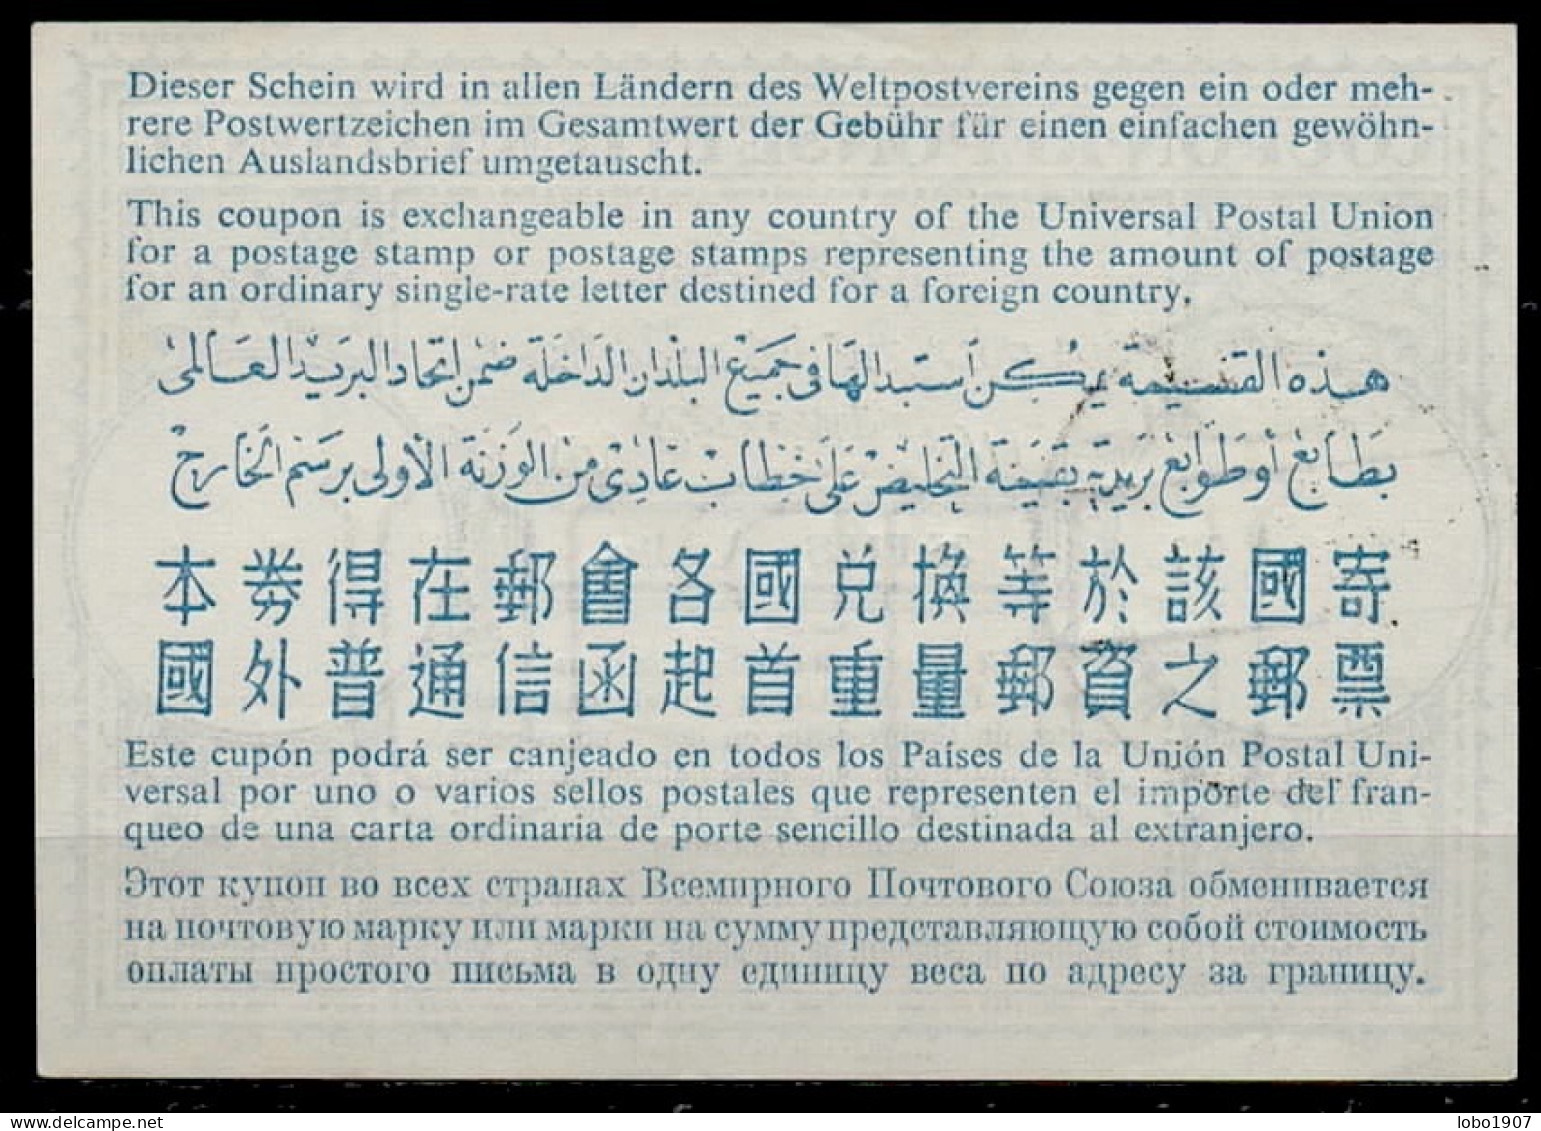 Dieser Schein wird in allen Ländern des Weltpostvereins gegen ein oder meh-
rere Postwertzeichen im Gesamtwert der Gebühr für einen einfachen gewöhn-
lichen Auslandsbrief umgetauscht.
This coupon is exchangeable in any country of the Universal Postal Union
for a postage stamp or postage stamps representing the amount of postage
for an ordinary single-rate letter destined for a foreign country.
هذه القسيمة يمكن استبدالها في جميع البلدان الداخلة ضمن اتحاد البريد العالمى
بطابع أو طوابع بريدية بقيمة التخليص على خطاب عادى من الوزنة الأولى برسم الخارج
本券得在郵會各國兌換等於該國寄
國外普通信函起首重量郵資之郵票
Este cupón podrá ser canjeado en todos los Países de la Unión Postal Uni-
versal por uno o varios sellos postales que representen el importe del fran-
queo de una carta ordinaria de porte sencillo destinada al extranjero.
Этот купон во всех странах Всемирного Почтового Союза обменивается
на почтовую марку или марки на сумму представляющую собой стоимость
оплаты простого письма в одну единицу веса по адресу за границу.
www.delcampe.net
lobo1907